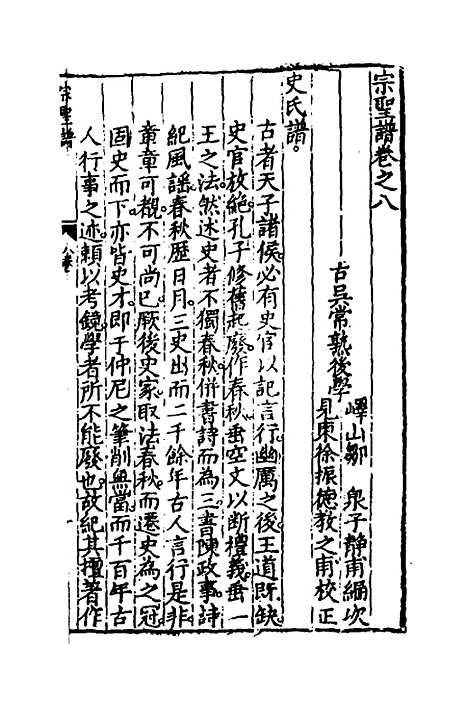 宗聖譜卷之八
古吳常熟後學
嶧山鄒　泉子靜甫編次
見東徐振德敎之甫校正
史氏譜。
古者天子諸侯必有史官以記言行幽厲之後王道既缺
史官放絕孔子修舊起廢作春秋垂空文以断禮義垂一
王之法然述史者不獨春秋併書詩而為三書陳政事詩
紀風謡春秋歷日月三史出而二千餘年古人言行是非
章章可覩不可尚巳厥後史家取法春秋而遷史為之冠
固史而下亦皆史才即于仲尼之筆削無當而千百年古
人行事之述頼以考鏡學者所不能廢也故紀其擅著作
宗聖譜
八卷